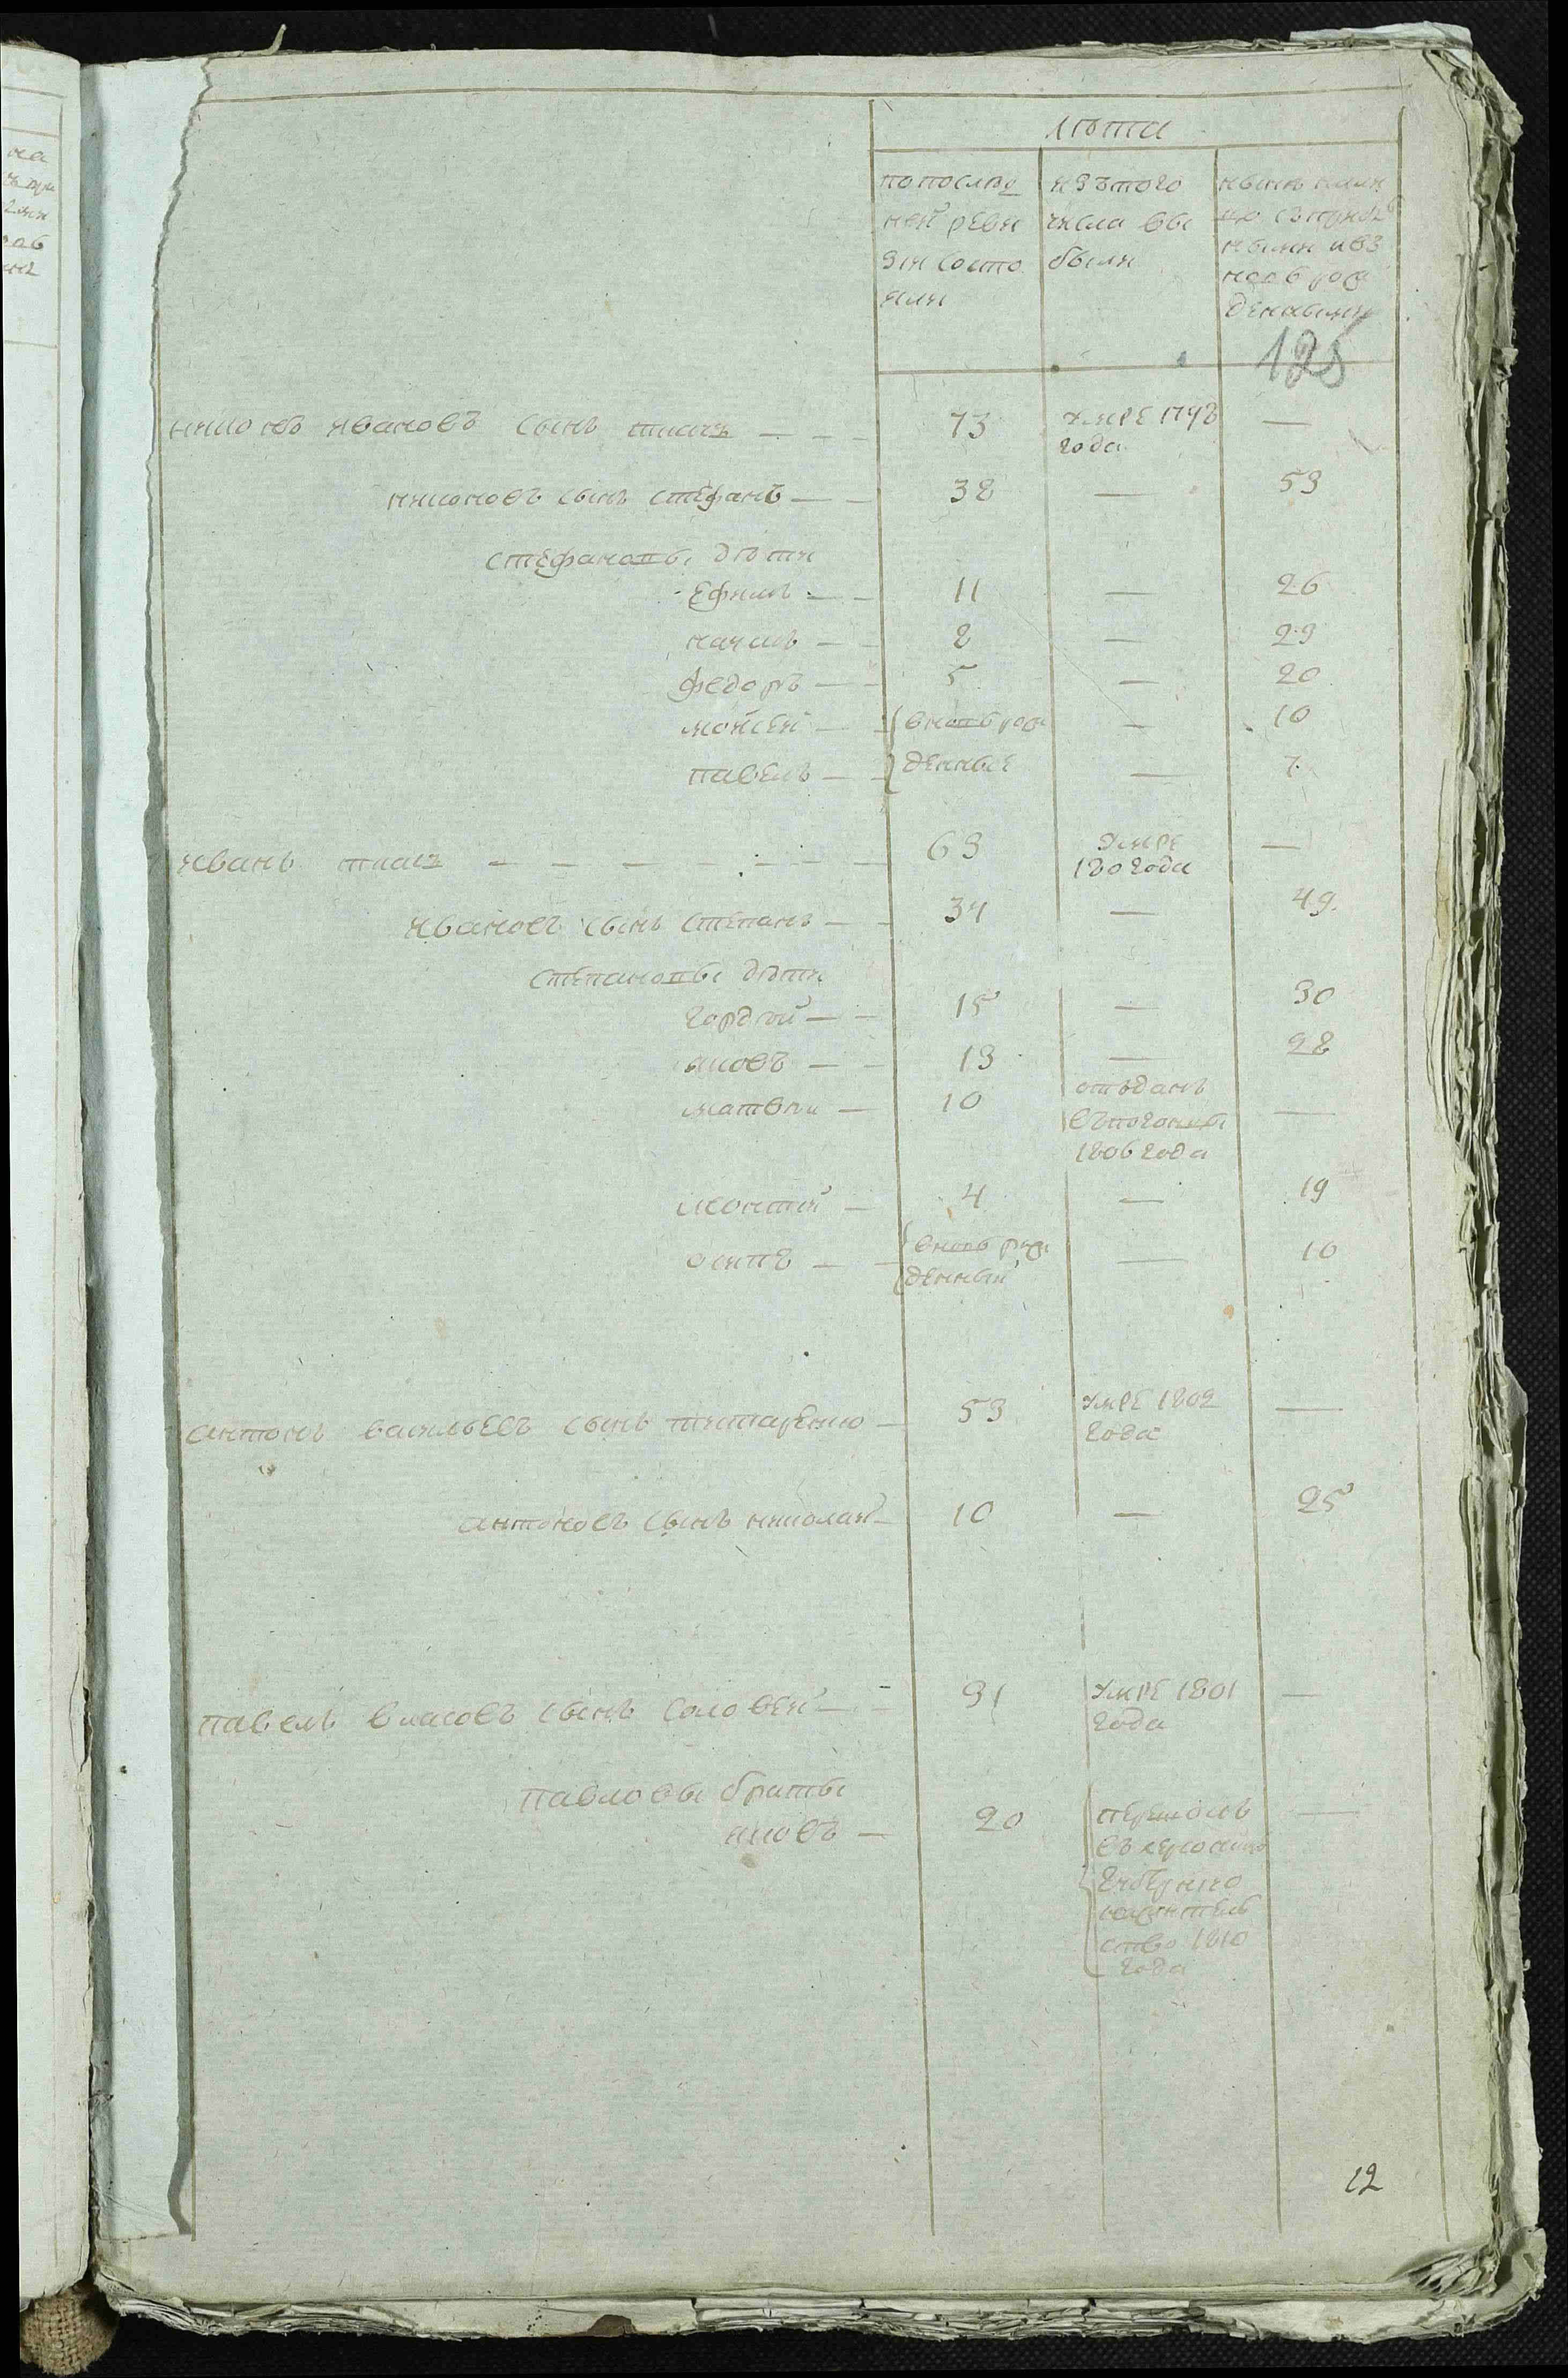 лѣта
попослѣд
ней реви
зіи состо
яли
изътого
числа вы
были
нынѣ нали
цо съприбы
лыми и вз
новь рож
денными
125
никонъ ивановъ сынъ ткачъ — — — 73 умре 1798 —
года
никоновъ сынъ стефанъ — — 38 — 53
стефановы дѣти
ефимъ — — 11 — 26
наумъ — — 8 — 23
федоръ — — 5 — 20
мойсей — вновь рож — 10
павелъ — денные — 7
иванъ ткачъ — — — — — — 63 умре —
180 года
ивановъ сынъ степанъ — — 34 — 49
степановы дѣти
гордѣй — — 15 — 30
яковъ — — 13 — 28
матвѣи — 10 отъданъ —
въпогонцы
1806 года
леонтій — 4 — 19
осипъ — вновь рож — 10
денный
антонъ васильевъ сынъ титаренко — 53 умре 1802 —
года
антоновъ сынъ николай — 10 — 25
павелъ власовъ сынъ соловей — — 31 умре 1801 —
года
павловы браты
яковъ — 20 перешолъ —
въхерсонскую
губернію
нажитель
ство 1810
года
12